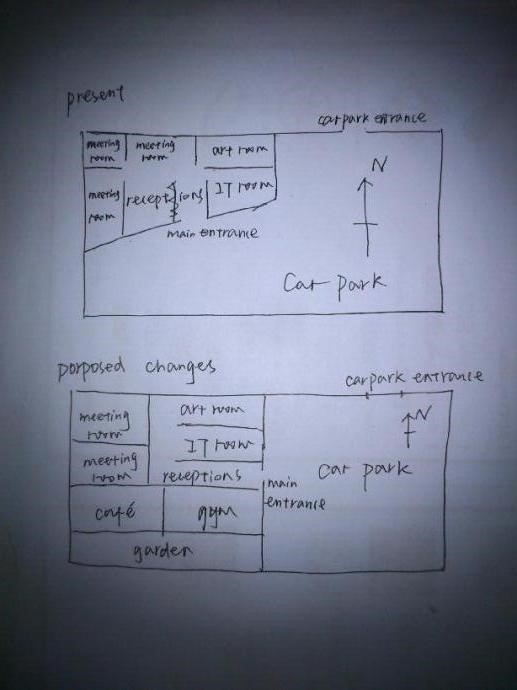 present
carpark entrance
meeting
room
meeting
room
art room
N
meeting
room
receptions
IT room
main entrance
Car park
porposed changes
carpark entrance
meeting
room
art room
N
IT room
meeting
room
receptions
Car park
main
entrance
café
gym
garden